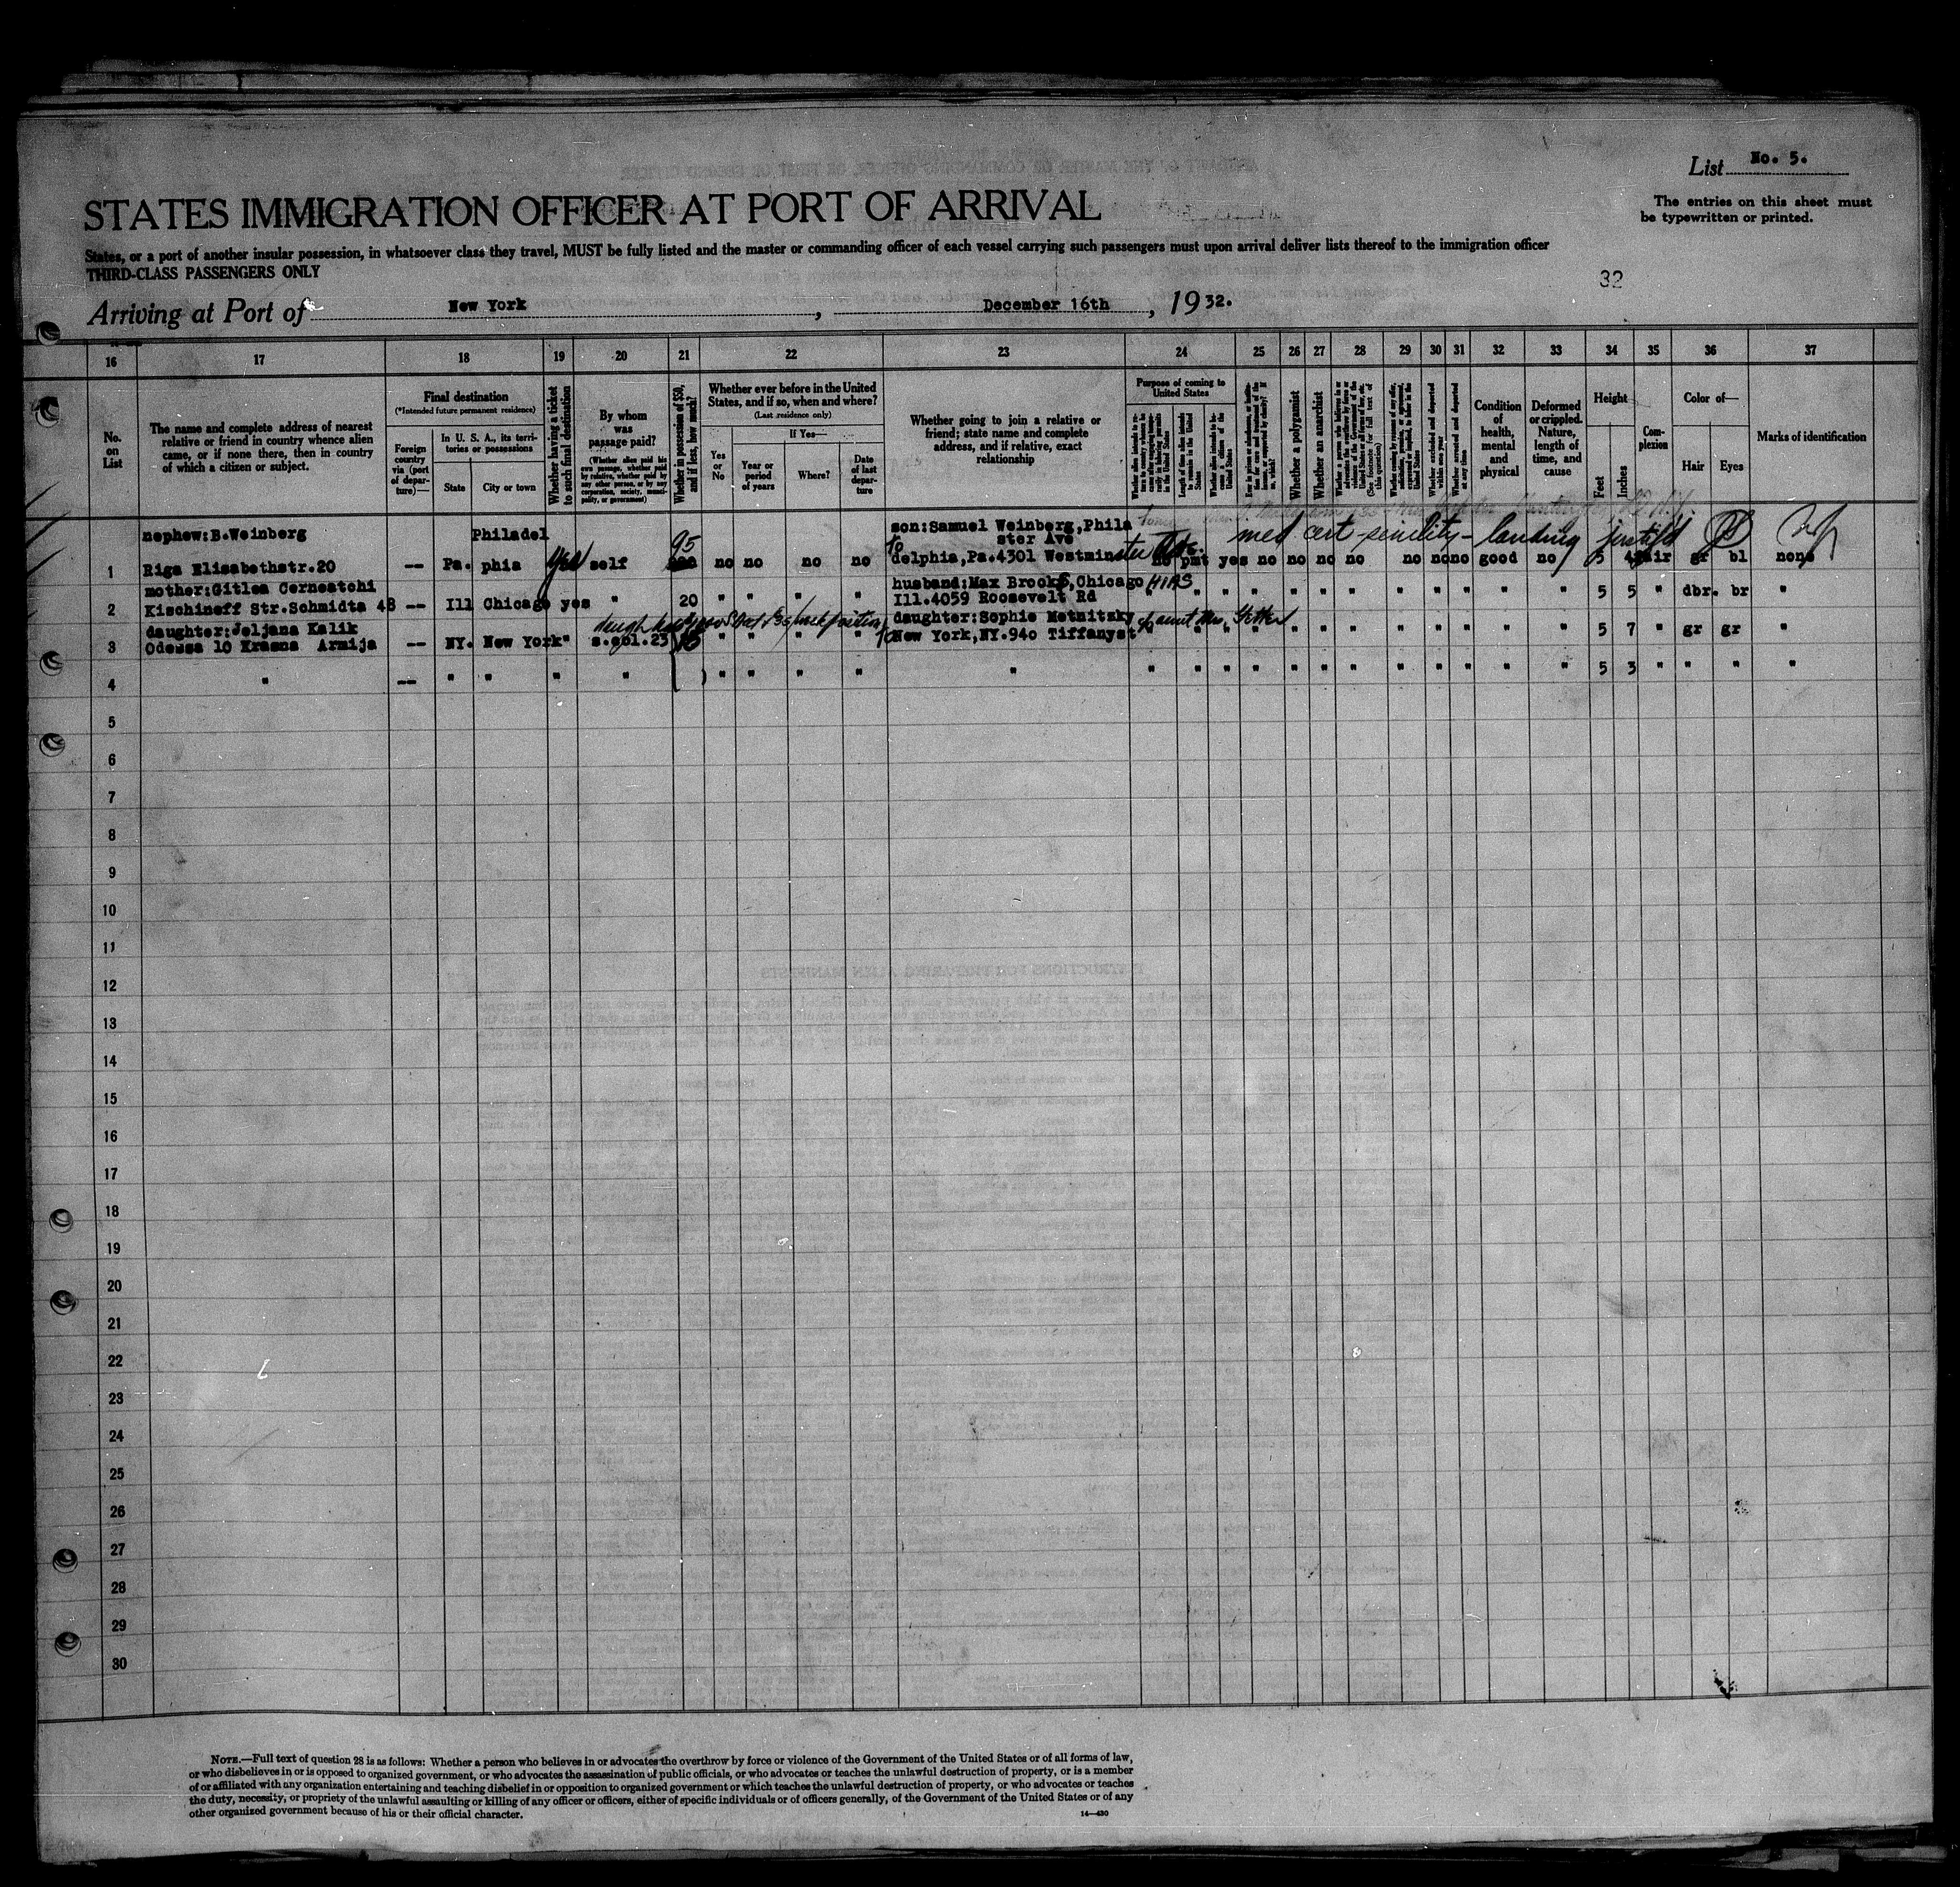 List No. 5.
The entries on this sheet must
be typewritten or printed.
STATES IMMIGRATION OFFICER AT PORT OF ARRIVAL
States, or a port of another insular possession, in whatsoever class they travel, MUST be fully listed and the master or commanding officer of each vessel carrying such passengers must upon arrival deliver lists thereof to the immigration officer
THIRD-CLASS PASSENGERS ONLY
32
Arriving at Port of New York, December 16th, 1932.
16 17 18 19 20 21 22 23 24 25 26 27 28 29 30 31 32 33 34 35 36 37
No.
on
List
The name and complete address of nearest
relative or friend in country whence alien
came, or if none there, then in country
of which a citizen or subject.
Final destination
(*Intended future permanent residence)
Foreign
country
via (port
of depar-
ture)—
In U. S. A., its terri-
tories or possessions
State
City or town
Whether having a ticket
to such final destination
By whom
was
passage paid?
(Whether alien paid his
own passage, whether paid
by relative, whether paid by
any other person, or by any
corporation, society, munici-
pality, or government)
Whether in possession of $50,
and if less, how much?
Whether ever before in the United
States, and if so, when and where?
(Last residence only)
Yes
or
No
If Yes—
Year or
period
of years
Where?
Date
of last
depar-
ture
Whether going to join a relative or
friend; state name and complete
address, and if relative, exact
relationship
Purpose of coming to
United States
Length of time alien intends
to remain in the United
States
Whether alien intends to be-
come a citizen of the
United States
Whether a polygamist
Whether an anarchist
Whether excluded and deported
within one year
Whether arrested and deported
at any time
Condition
of
health,
mental
and
physical
Deformed
or crippled.
Nature,
length of
time, and
cause
Height
Feet
Inches
Com-
plexion
Color of—
Hair
Eyes
Marks of identification
nephew:B.Weinberg Philadel 95 son:Samuel Weinberg,Phila med cert - senility - landing justified
ster Ave
1 Riga Elisabethstr.20 -- Pa. phia yes self no no no no delphia,Pa.4301 Westminster no pmt yes no no no no no no no good no 5 4 fair gr bl none
mother:Gitlea Cerneatchi husband:Max Brooks,Chicago HIAS
2 Kischineff Str.Schmidta 48 -- Ill Chicago yes " 20 " " " " Ill.4059 Roosevelt Rd " " " " " " " " " " " " 5 5 " dbr. br "
daughter:Jeljana Kalik daughter:Sophie Metnitzky
3 Odessa 10 Krasna Armija -- NY. New York " s.gbl.23 " " " " New York,NY.940 Tiffanyst " " " " " " " " " " " " 5 7 " gr gr "
4 " -- " " " " " " " " " " " " " " " " " " " " " 5 3 " " " "
5
6
7
8
9
10
11
12
13
14
15
16
17
18
19
20
21
22
23
24
25
26
27
28
29
30
NOTE.—Full text of question 28 is as follows: Whether a person who believes in or advocates the overthrow by force or violence of the Government of the United States or of all forms of law,
or who disbelieves in or is opposed to organized government, or who advocates the assassination of public officials, or who advocates or teaches the unlawful destruction of property, or is a member
of or affiliated with any organization entertaining and teaching disbelief in or opposition to organized government or which teaches the unlawful destruction of property, or who advocates or teaches
the duty, necessity, or propriety of the unlawful assaulting or killing of any officer or officers, either of specific individuals or of officers generally, of the Government of the United States or of any
other organized government because of his or their official character.
14—430